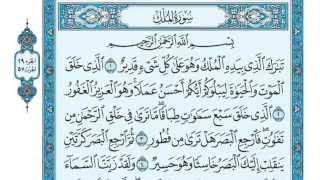 سُورَةُ المُلْكِ
بِسْمِ اللَّهِ الرَّحْمَٰنِ الرَّحِيمِ
تَبَارَكَ الَّذِي بِيَدِهِ الْمُلْكُ وَهُوَ عَلَىٰ كُلِّ شَيْءٍ قَدِيرٌ ١ الَّذِي خَلَقَ
الْمَوْتَ وَالْحَيَاةَ لِيَبْلُوَكُمْ أَيُّكُمْ أَحْسَنُ عَمَلًا وَهُوَ الْعَزِيزُ الْغَفُورُ
٢ الَّذِي خَلَقَ سَبْعَ سَمَاوَاتٍ طِبَاقًا مَّا تَرَىٰ فِي خَلْقِ الرَّحْمَٰنِ مِن
تَفَاوُتٍ فَارْجِعِ الْبَصَرَ هَلْ تَرَىٰ مِن فُطُورٍ ٣ ثُمَّ ارْجِعِ الْبَصَرَ كَرَّتَيْنِ
يَنقَلِبْ إِلَيْكَ الْبَصَرُ خَاسِئًا وَهُوَ حَسِيرٌ ٤ وَلَقَدْ زَيَّنَّا السَّمَاءَ
الجزء ٢٩